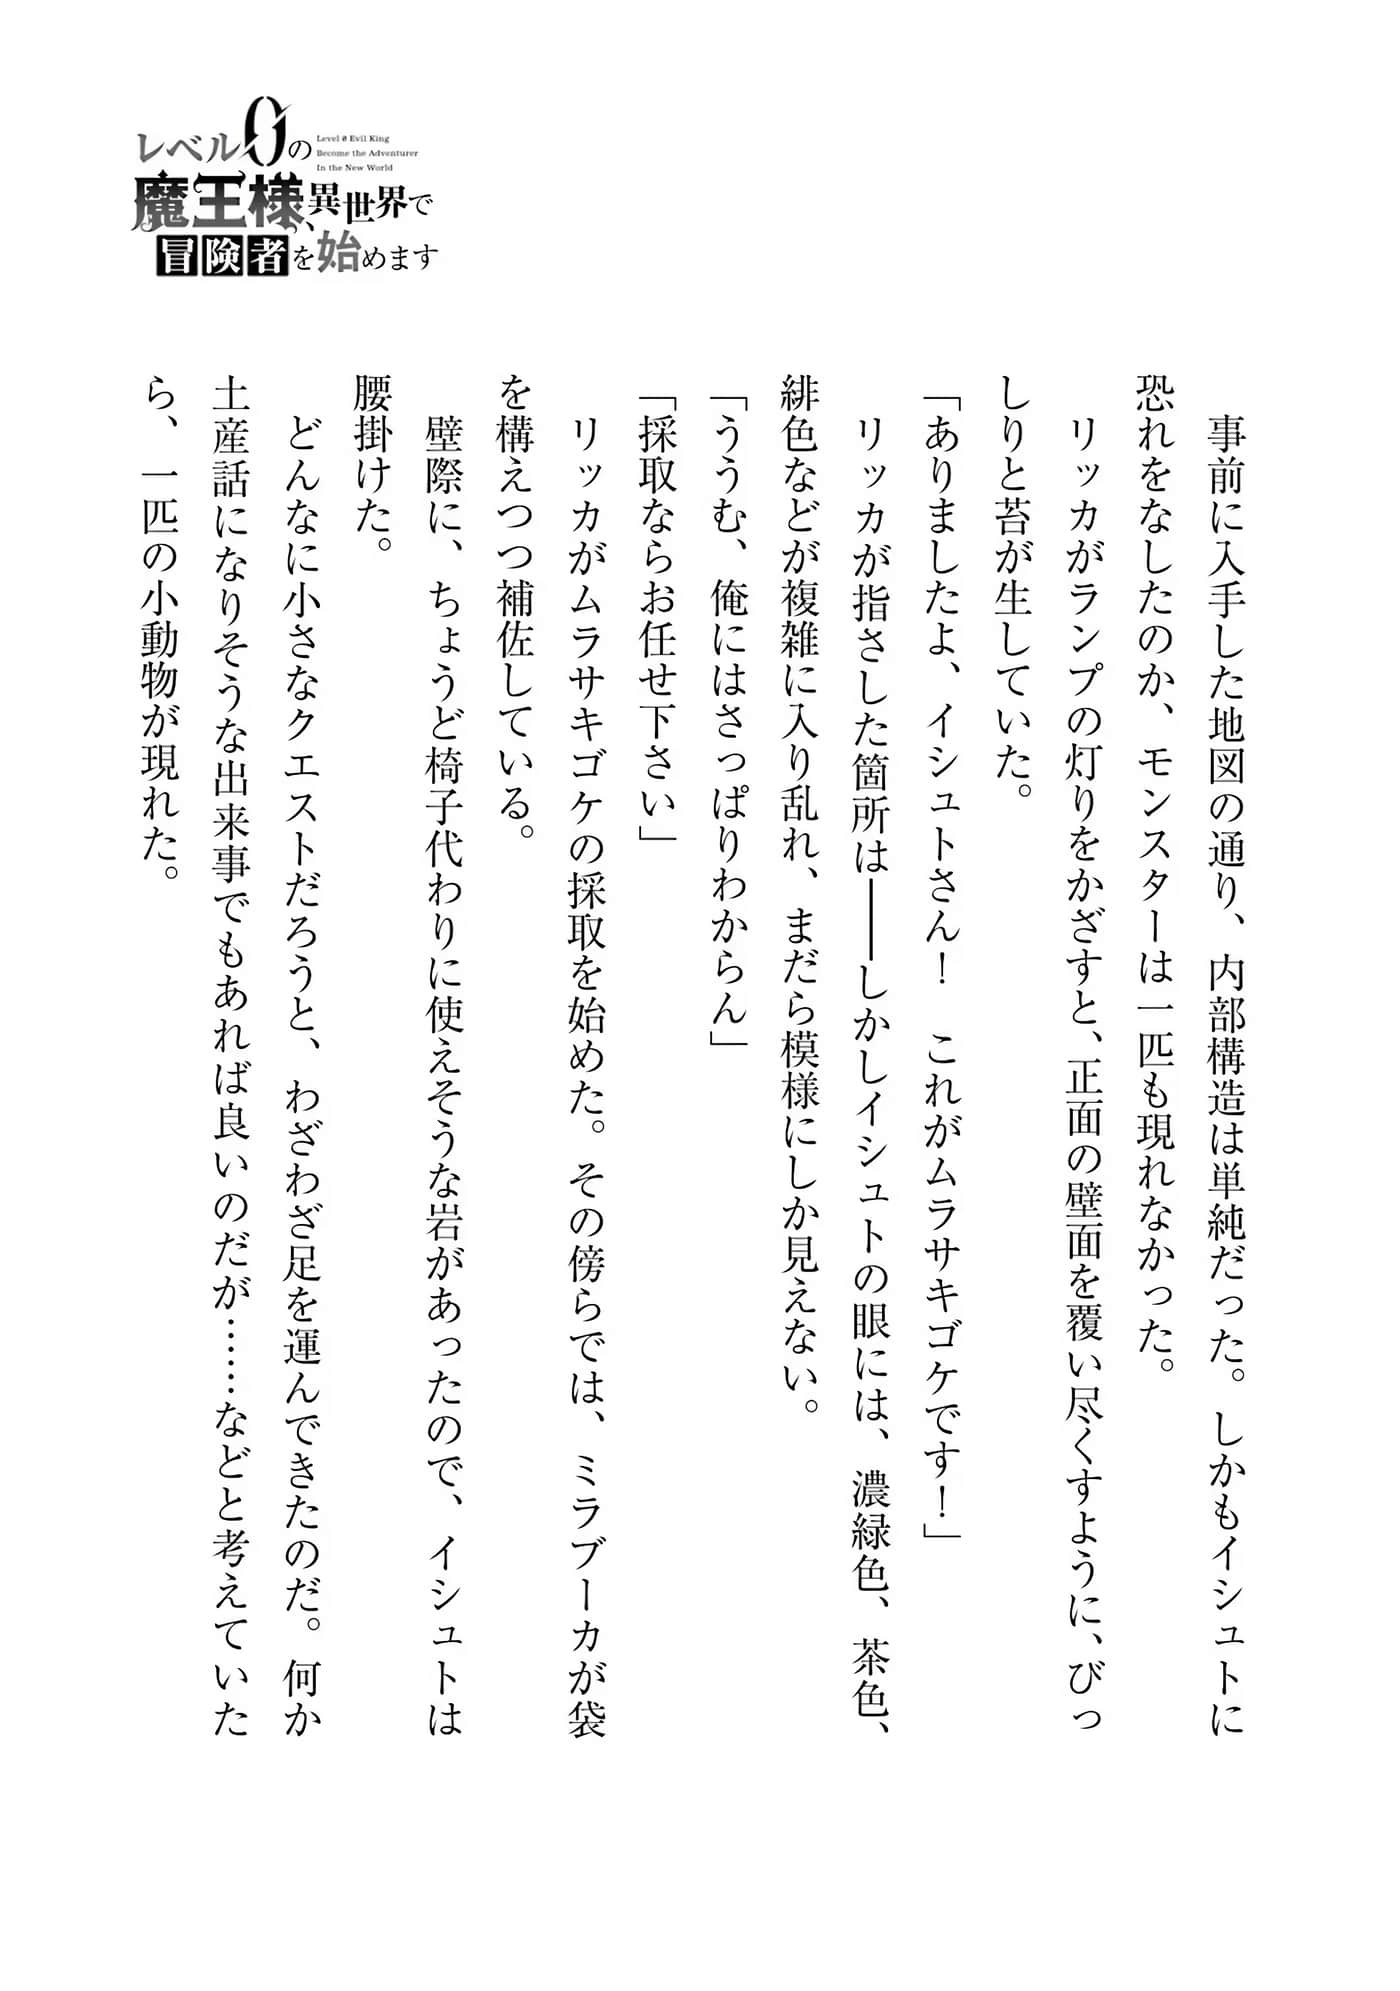 レベル0の
Level 0 Evil King
Become the Adventurer
In the New World
魔王様、異世界で
冒険者を始めます
　事前に入手した地図の通り、内部構造は単純だった。しかもイシュトに
恐れをなしたのか、モンスターは一匹も現れなかった。
　リッカがランプの灯りをかざすと、正面の壁面を覆い尽くすように、びっ
しりと苔が生していた。
「ありましたよ、イシュトさん！　これがムラサキゴケです！」
　リッカが指さした箇所は――しかしイシュトの眼には、濃緑色、茶色、
緋色などが複雑に入り乱れ、まだら模様にしか見えない。
「ううむ、俺にはさっぱりわからん」
「採取ならお任せ下さい」
　リッカがムラサキゴケの採取を始めた。その傍らでは、ミラブーカが袋
を構えつつ補佐している。
　壁際に、ちょうど椅子代わりに使えそうな岩があったので、イシュトは
腰掛けた。
　どんなに小さなクエストだろうと、わざわざ足を運んできたのだ。何か
土産話になりそうな出来事でもあれば良いのだが……などと考えていた
ら、一匹の小動物が現れた。